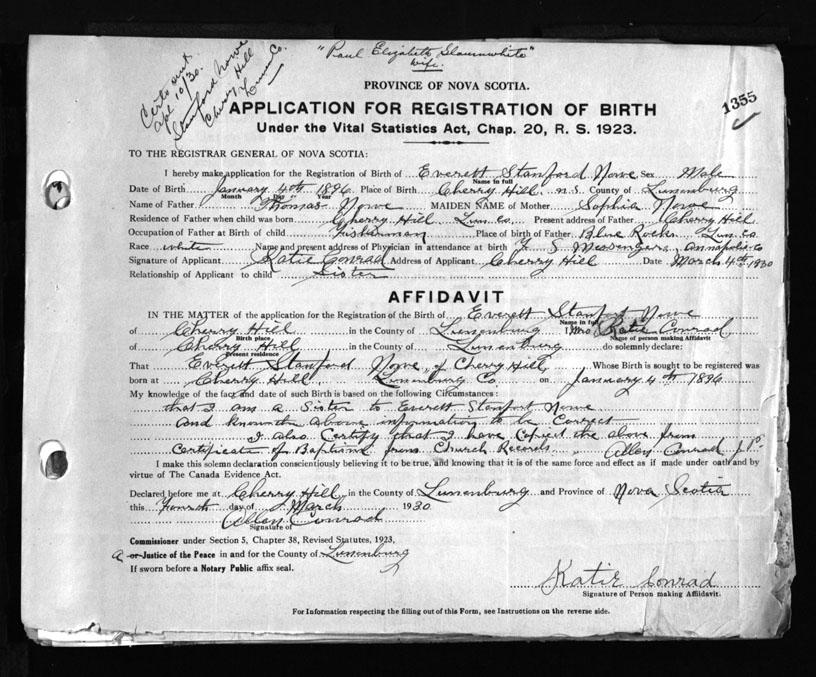 "Pearl Elizabeth Slaunwhite"
wife.
Certs out.
Apl 10/30.
Stanford Nowe
Cherry Hill
Lunen Co.
PROVINCE OF NOVA SCOTIA.
1355
APPLICATION FOR REGISTRATION OF BIRTH
Under the Vital Statistics Act, Chap. 20, R. S. 1923.
TO THE REGISTRAR GENERAL OF NOVA SCOTIA:
I hereby make application for the Registration of Birth of Everett Stanford Nowe Sex Male
Name in full
Date of Birth January 4th 1896 Place of Birth Cherry Hill N.S. County of Lunenburg
Month Day Year
Name of Father Thomas Nowe MAIDEN NAME of Mother Sophia Nowe
Residence of Father when child was born Cherry Hill Lun. Co. Present address of Father Cherry Hill
Occupation of Father at Birth of child Fisherman Place of birth of Father Blue Rocks Lun. Co
Race white Name and present address of Physician in attendance at birth F S Messenger, Annapolis Co
Signature of Applicant Katie Conrad Address of Applicant Cherry Hill Date March 4th 1930
Relationship of Applicant to child Sister
AFFIDAVIT
IN THE MATTER of the application for the Registration of the Birth of Everett Stanford Nowe
Name in full
of Cherry Hill in the County of Lunenburg I Mrs Katie Conrad
Birth place Name of person making Affidavit
of Cherry Hill in the County of Lunenburg do solemnly declare:
Present residence
That Everett Stanford Nowe, of Cherry Hill, Whose Birth is sought to be registered was
born at Cherry Hill, Lunenburg Co. on January 4th 1896
My knowledge of the fact and date of such Birth is based on the following Circumstances:
that I am a Sister to Everett Stanfort Nowe
and know the above information to be Correct
I also Certify that I have Copied the above from
Certificate of Baptism from Church Records " Allen Conrad J.P.
I make this solemn declaration conscientiously believing it to be true, and knowing that it is of the same force and effect as if made under oath and by
virtue of The Canada Evidence Act.
Declared before me at Cherry Hill, in the County of Lunenburg and Province of Nova Scotia
this Fourth day of March 1930
Allen Conrad
Signature of
Commissioner under Section 5, Chapter 38, Revised Statutes, 1923,
a or Justice of the Peace in and for the County of Lunenburg
If sworn before a Notary Public affix seal.
Katie Conrad
Signature of Person making Affidavit.
For Information respecting the filling out of this Form, see Instructions on the reverse side.